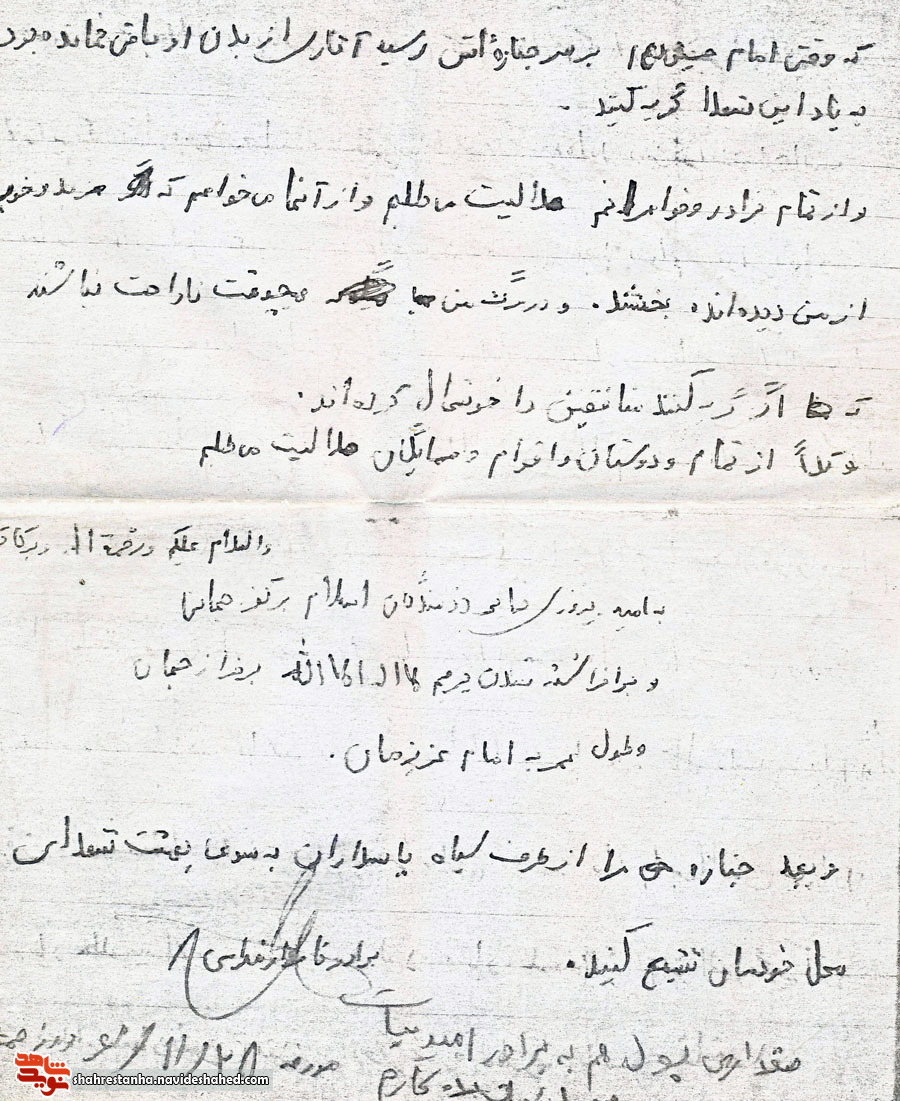 که وقتی امام حسین (ع) بر سر جنازه‌اش رسید آثاری از بدن او باقی نمانده بود
به یاد این شهدا گریه کنید.
و از تمام برادر و خواهرانم حلالیت می‌طلبم و از آنها می‌خواهم که هر بد و خوبی
از من دیده‌اند ببخشند. و در مرگ من هیچوقت ناراحت نباشند
که اگر گریه کنند منافقین را خوشحال کرده‌اند.
از تمام دوستان و اقوام و همسایگان حلالیت می‌طلبم
والسلام علیکم و رحمة الله و برکاته
به امید پیروزی نهایی رزمندگان اسلام بر کفر جهانی
و برافراشته شدن پرچم لا اله الا الله بر فراز جهان
و طول عمر به امام عزیزمان.
و بعد جنازه را از طرف سپاه پاسداران به سوی بهشت شهدای
محل خودمان تشییع کنید.
مقداری پول هم به برادر امید بیات
مورخه ۶۰/۱۱/۲۸ روز
نوید شاهد
shahrestanha.navideshahed.com